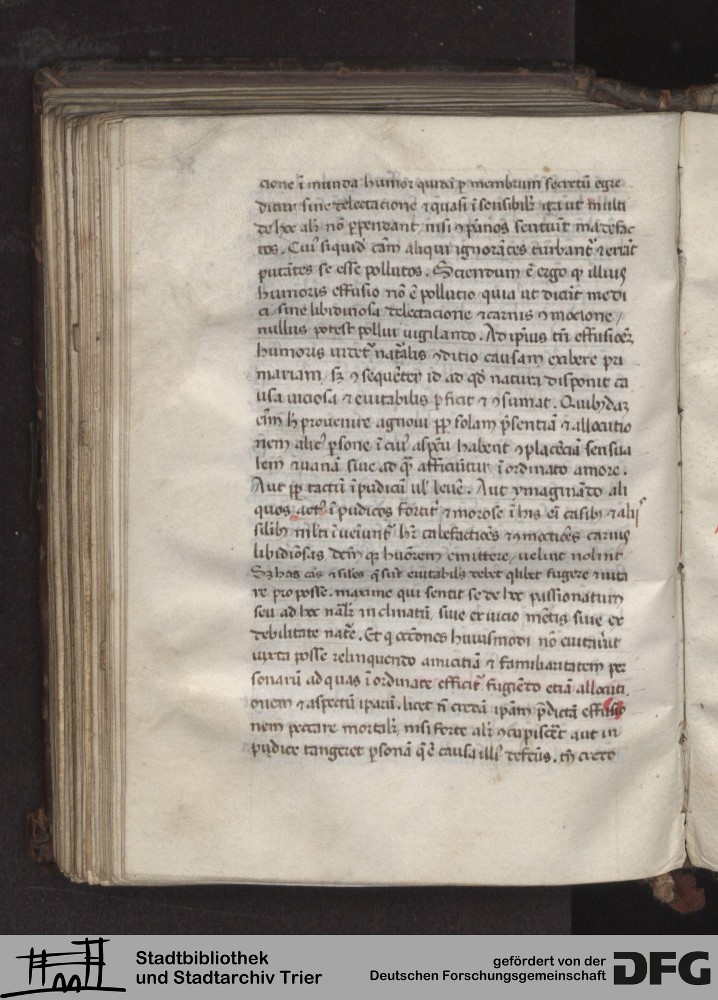 cione ī munda humor quidā p membrum secretū egre
ditur sine delectacione ⁊ quasi ī sensibilr ita ut multi
de hoc alr nō ꝑpendant nisi ꝯ pānos sentiunt madefac
tos. Cuiꝰ siquid cām aliqui ignorātes turbantr ⁊ errāt
putātes se esse pollutos. Sciendum ē ergo ꝙ illius
humoris effusio nō ē pollucio quia ut dicūt medi
ci sine libidinosa delectacione ⁊ carnis ꝯmocione
nullus potest pollui vigilando. Ad ipsius tn̄ effusiōeꝫ
humoris videtr natalis ꝯditio causam exibere pri
mariam, sꝫ ꝯsequēter id ad qd natura disponit ca
usa viciosa ⁊ evitabilis ꝑficit ⁊ ꝯsumat. Quibꝰdaꝫ
eīm h provenire agnovi ꝓp solam p̄sentiā ⁊ allocutio
nem alicꝰ psone ī cuiꝰ aspctu habent ꝯplacēciā sensua
lem ⁊ vanā sive ad qā afficiūtur īordinato amore.
Aut ꝓp tactū īpudicū ul leve. Aut ymaginādo ali
quos actꝰ īpudicos fortitr ⁊ morose ī his eī casibꝰ ⁊ aliis
silibꝰ mlti īveniunt hr̄e calefactiōes ⁊ ꝯmociōes carnis
libidinosas demum qꝫ humorem emittere, velint nolint
Sꝫ has cās ⁊ siles q̄ sūt evitabiles debet qlibet fugere ⁊ vita
re pro posse. maxime qui sentit se de hoc passionatum
seu ad hoc nālr inclinatū, sive ex vicio mētis sive ex
debilitate nature. Et q occōnes huiusmodi nō evitarūt
iuxta posse relinquendo amicitiā ⁊ familiaritatem per
sonarū ad quas īordinate efficitr fugiēdo etiā allocuti
onem ⁊ aspectū ipārū. licet n̄ credā ipām p̄dictā effusio
nem peccare mortalr, nisi forte alr ꝯcupisceret aut in
pudice tangeret psonā q̄ ē causa illiꝰ defectus. tn̄ credo
Stadtbibliothek
und Stadtarchiv Trier
gefördert von der
Deutschen Forschungsgemeinschaft
DFG